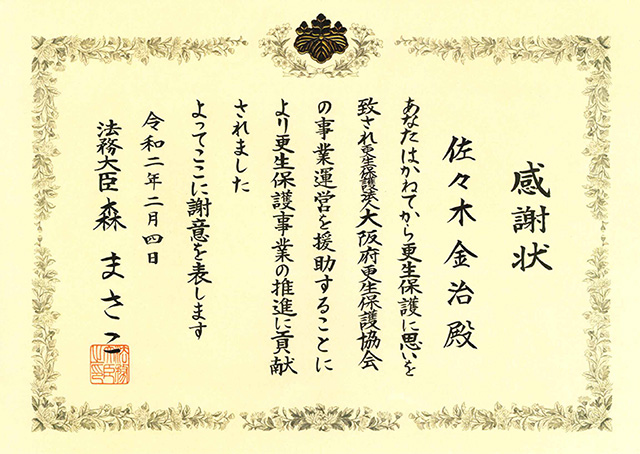 感謝状
佐々木金治殿
あなたはかねてから更生保護に思いを
致され更生保護法人大阪府更生保護協会
の事業運営を援助することに
より更生保護事業の推進に貢献
されました
よってここに謝意を表します
令和二年二月四日
法務大臣森まさこ